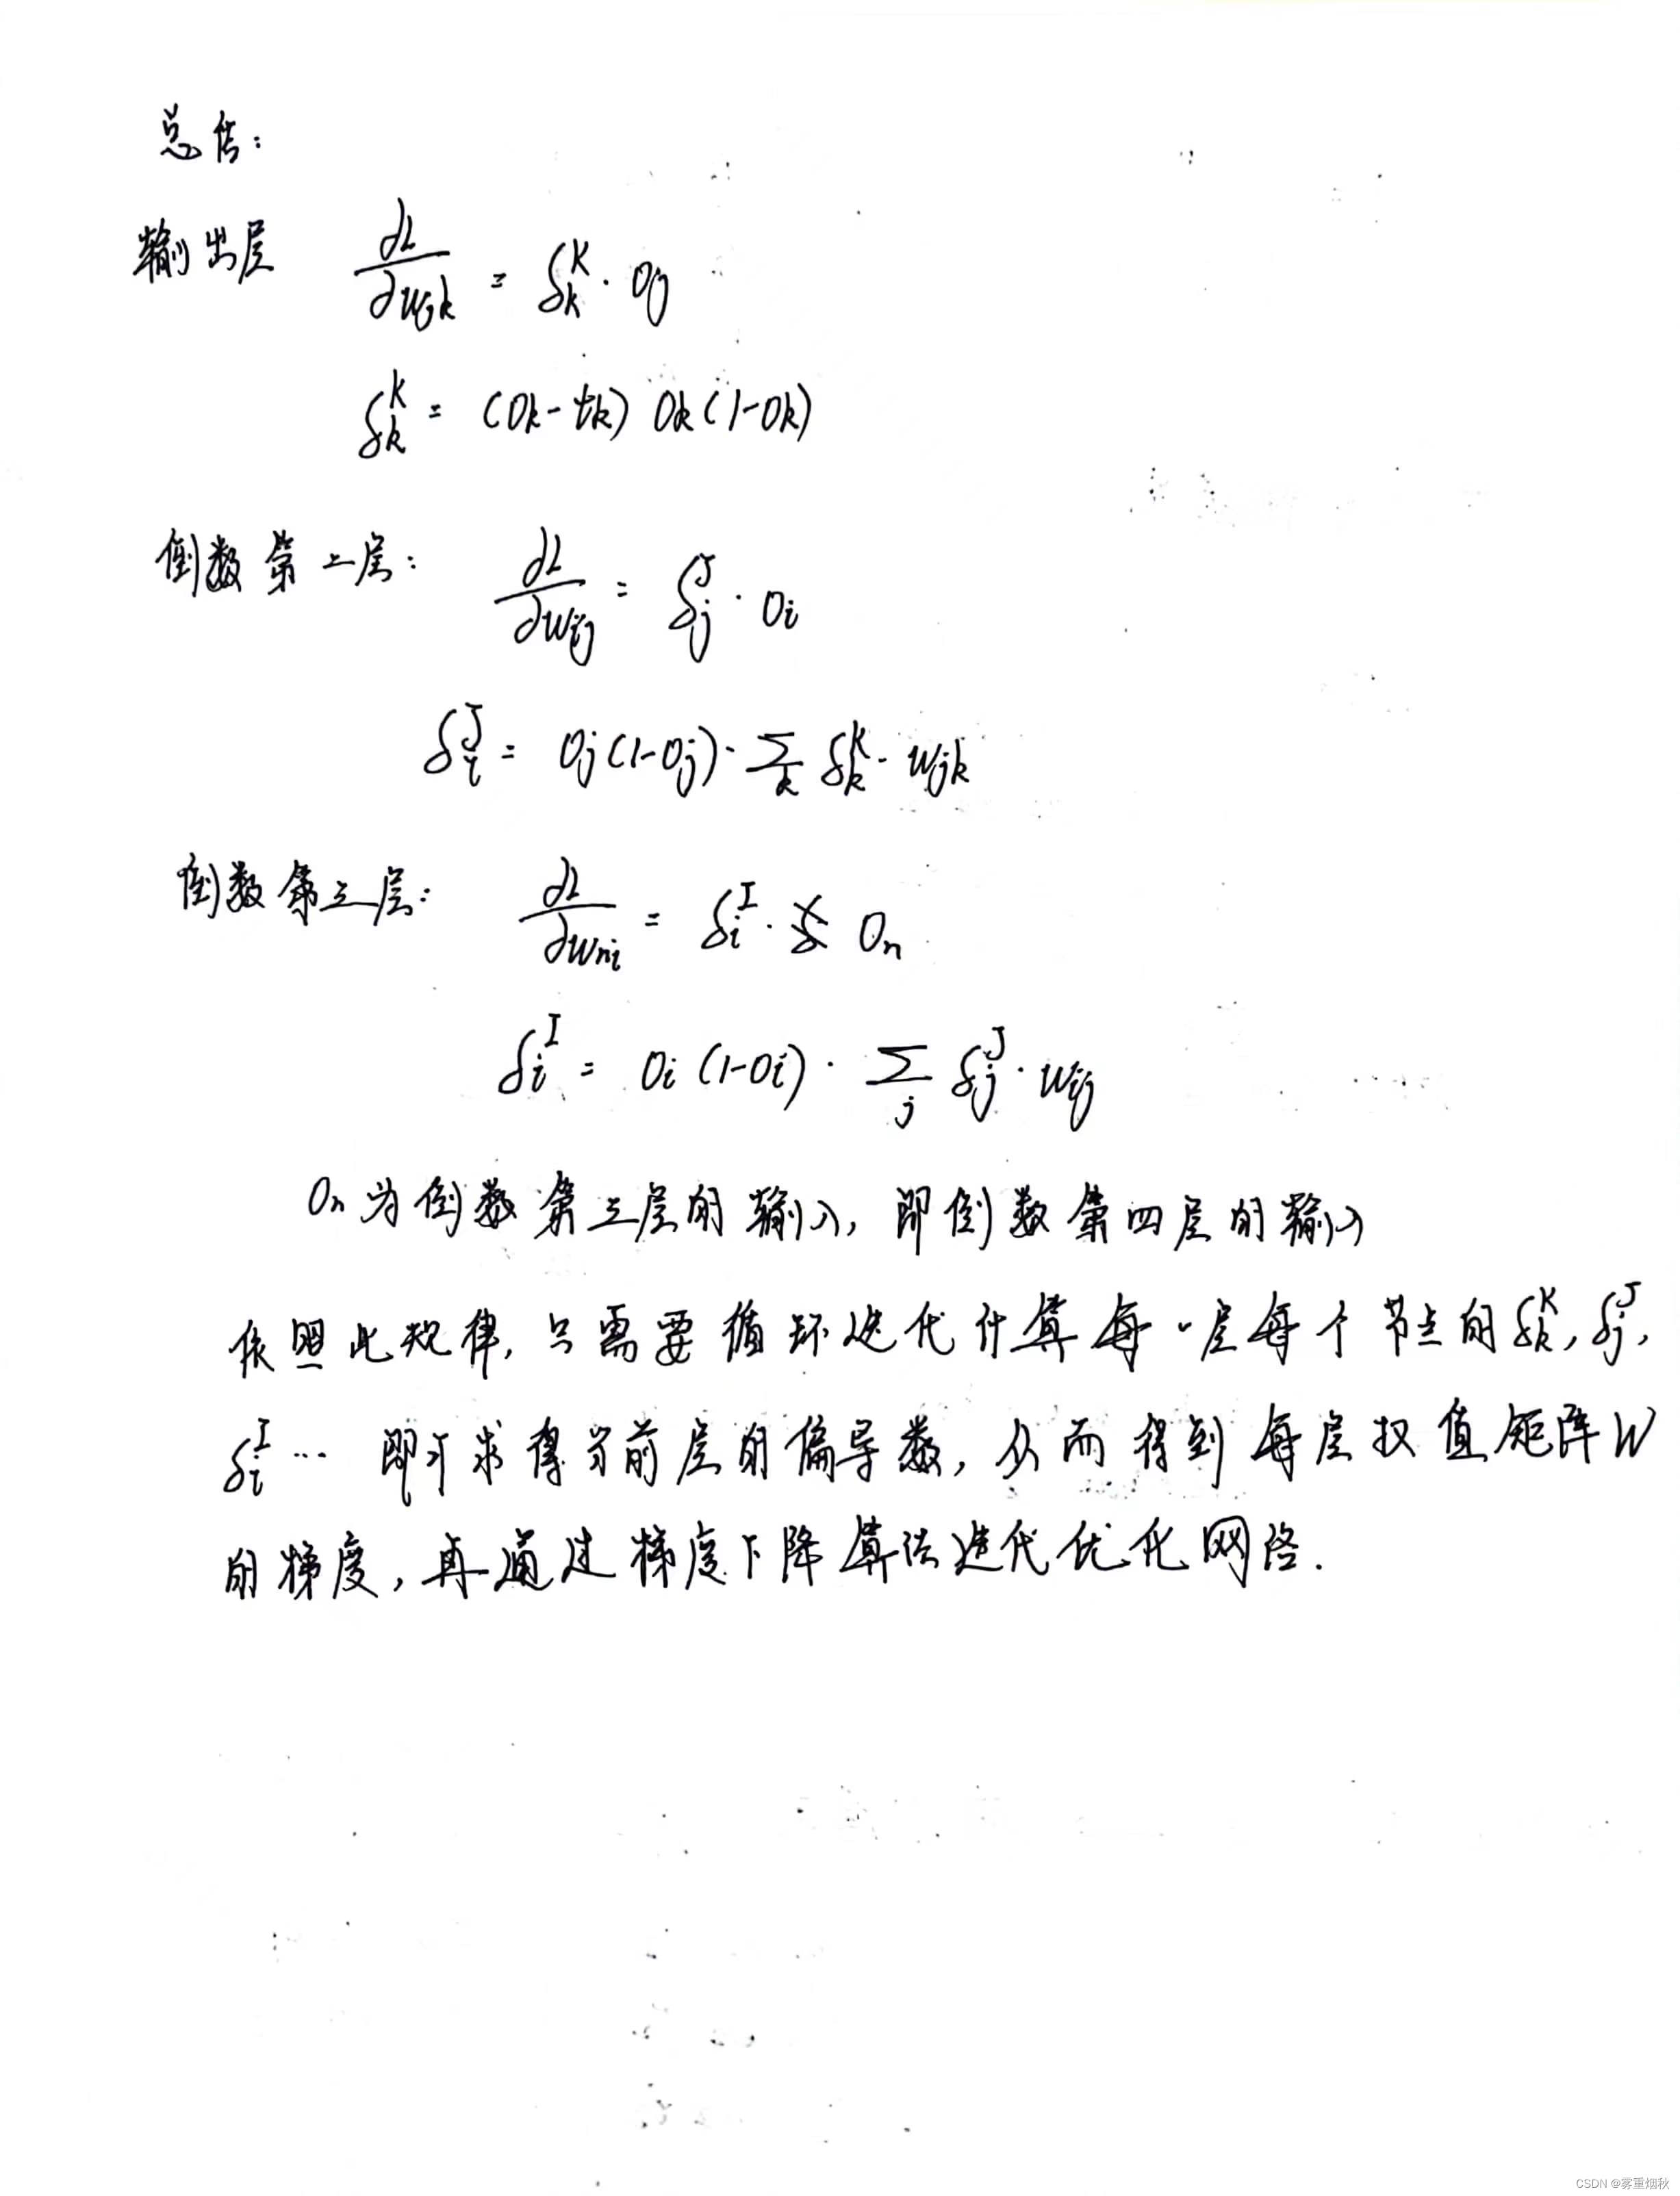 总结:
输出层 ∂L/∂w_jk = δ_k^K · O_j
δ_k^K = (O_k - t_k) O_k (1-O_k)
倒数第二层: ∂L/∂w_ij = δ_j^J · O_i
δ_i^J = O_j (1-O_j) · Σ_k δ_k^K · w_jk
倒数第三层: ∂L/∂w_ni = δ_i^I · O_n
δ_i^I = O_i (1-O_i) · Σ_j δ_j^J · w_ij
O_n 为倒数第三层的输入, 即倒数第四层的输入
依照此规律, 只需要循环迭代计算每一层每个节点的 δ_k^K, δ_j^J,
δ_i^I … 即可求得当前层的偏导数, 从而得到每层权值矩阵W
的梯度, 再通过梯度下降算法迭代优化网络.
CSDN @雾重烟秋